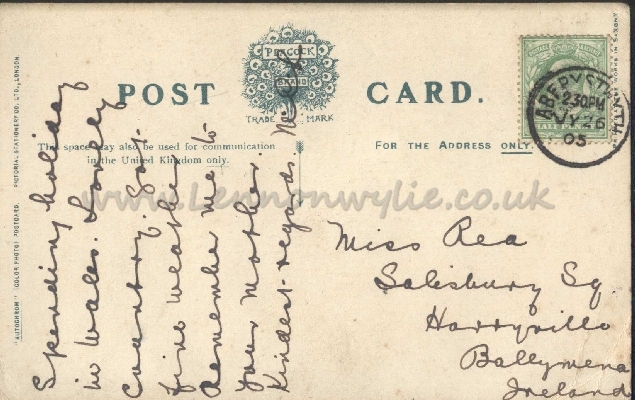 PEACOCK
BRAND
TRADE MARK
POST CARD.
This space may also be used for communication
in the United Kingdom only.
FOR THE ADDRESS ONLY
"AUTOCHROM" (COLOR PHOTO) POSTCARD. PICTORIAL STATIONERY CO. LTD., LONDON.
ABERYSTWYTH
2.30PM
JY 26
05
Spending holiday
in Wales. Lovely
country. Got
fine weather
Remember me to
your mother.
Kindest regards.
Miss Rea
Salisbury Sq.
Harryville
Ballymena
Ireland
www.Lennonwylie.co.uk